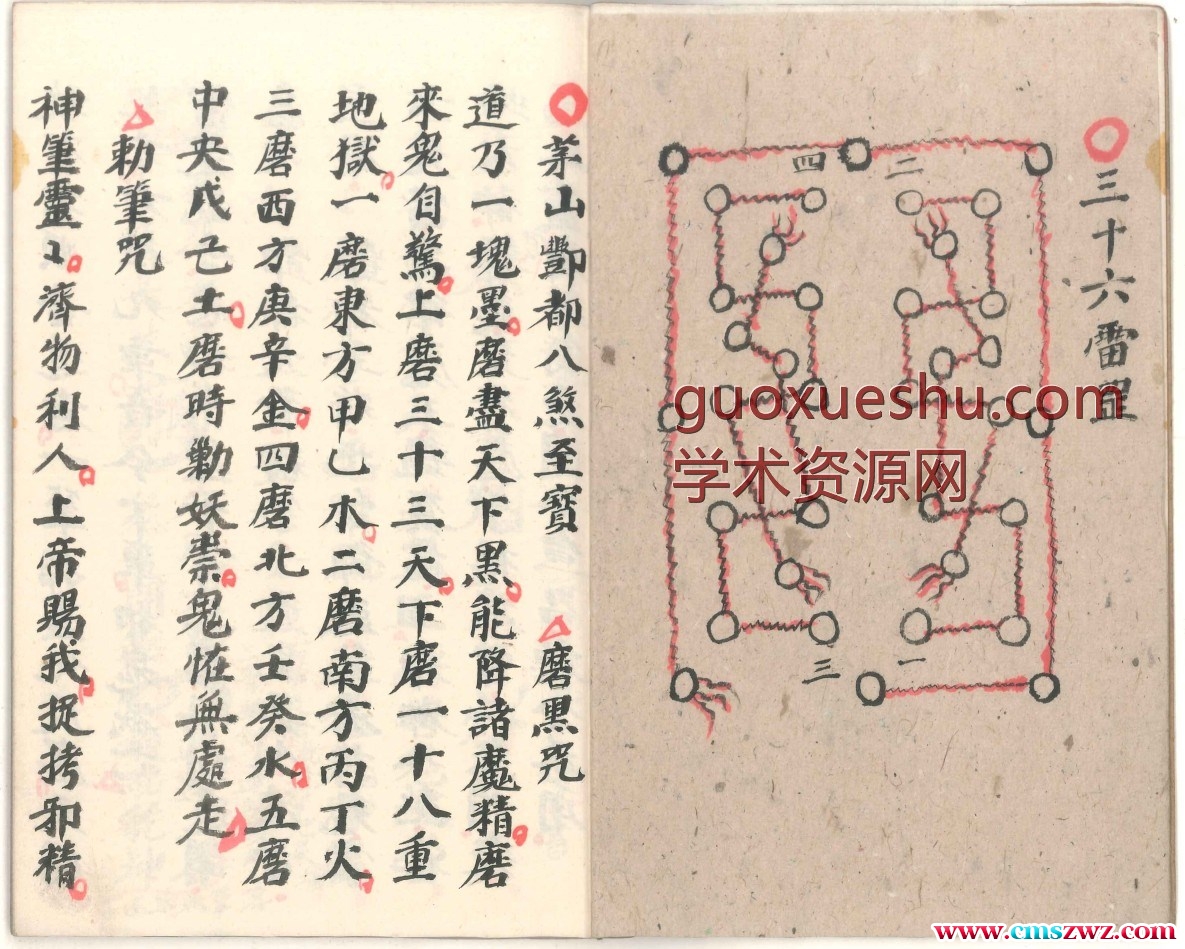 三十六雷罡
四
二
三
一
茅山酆都八煞至寶 磨黒咒
道乃一塊墨磨盡天下黒能降諸魔精磨
來鬼自驚上磨三十三天下磨一十八重
地獄一磨東方甲乙木二磨南方丙丁火
三磨西方庚辛金四磨北方壬癸水五磨
中央戊己土磨時勦妖崇鬼怪無處走
勅筆咒
神筆靈〻濟物利人上帝賜我捉拷邪精
guoxueshu.com
学术资源网
www.cmszwz.com